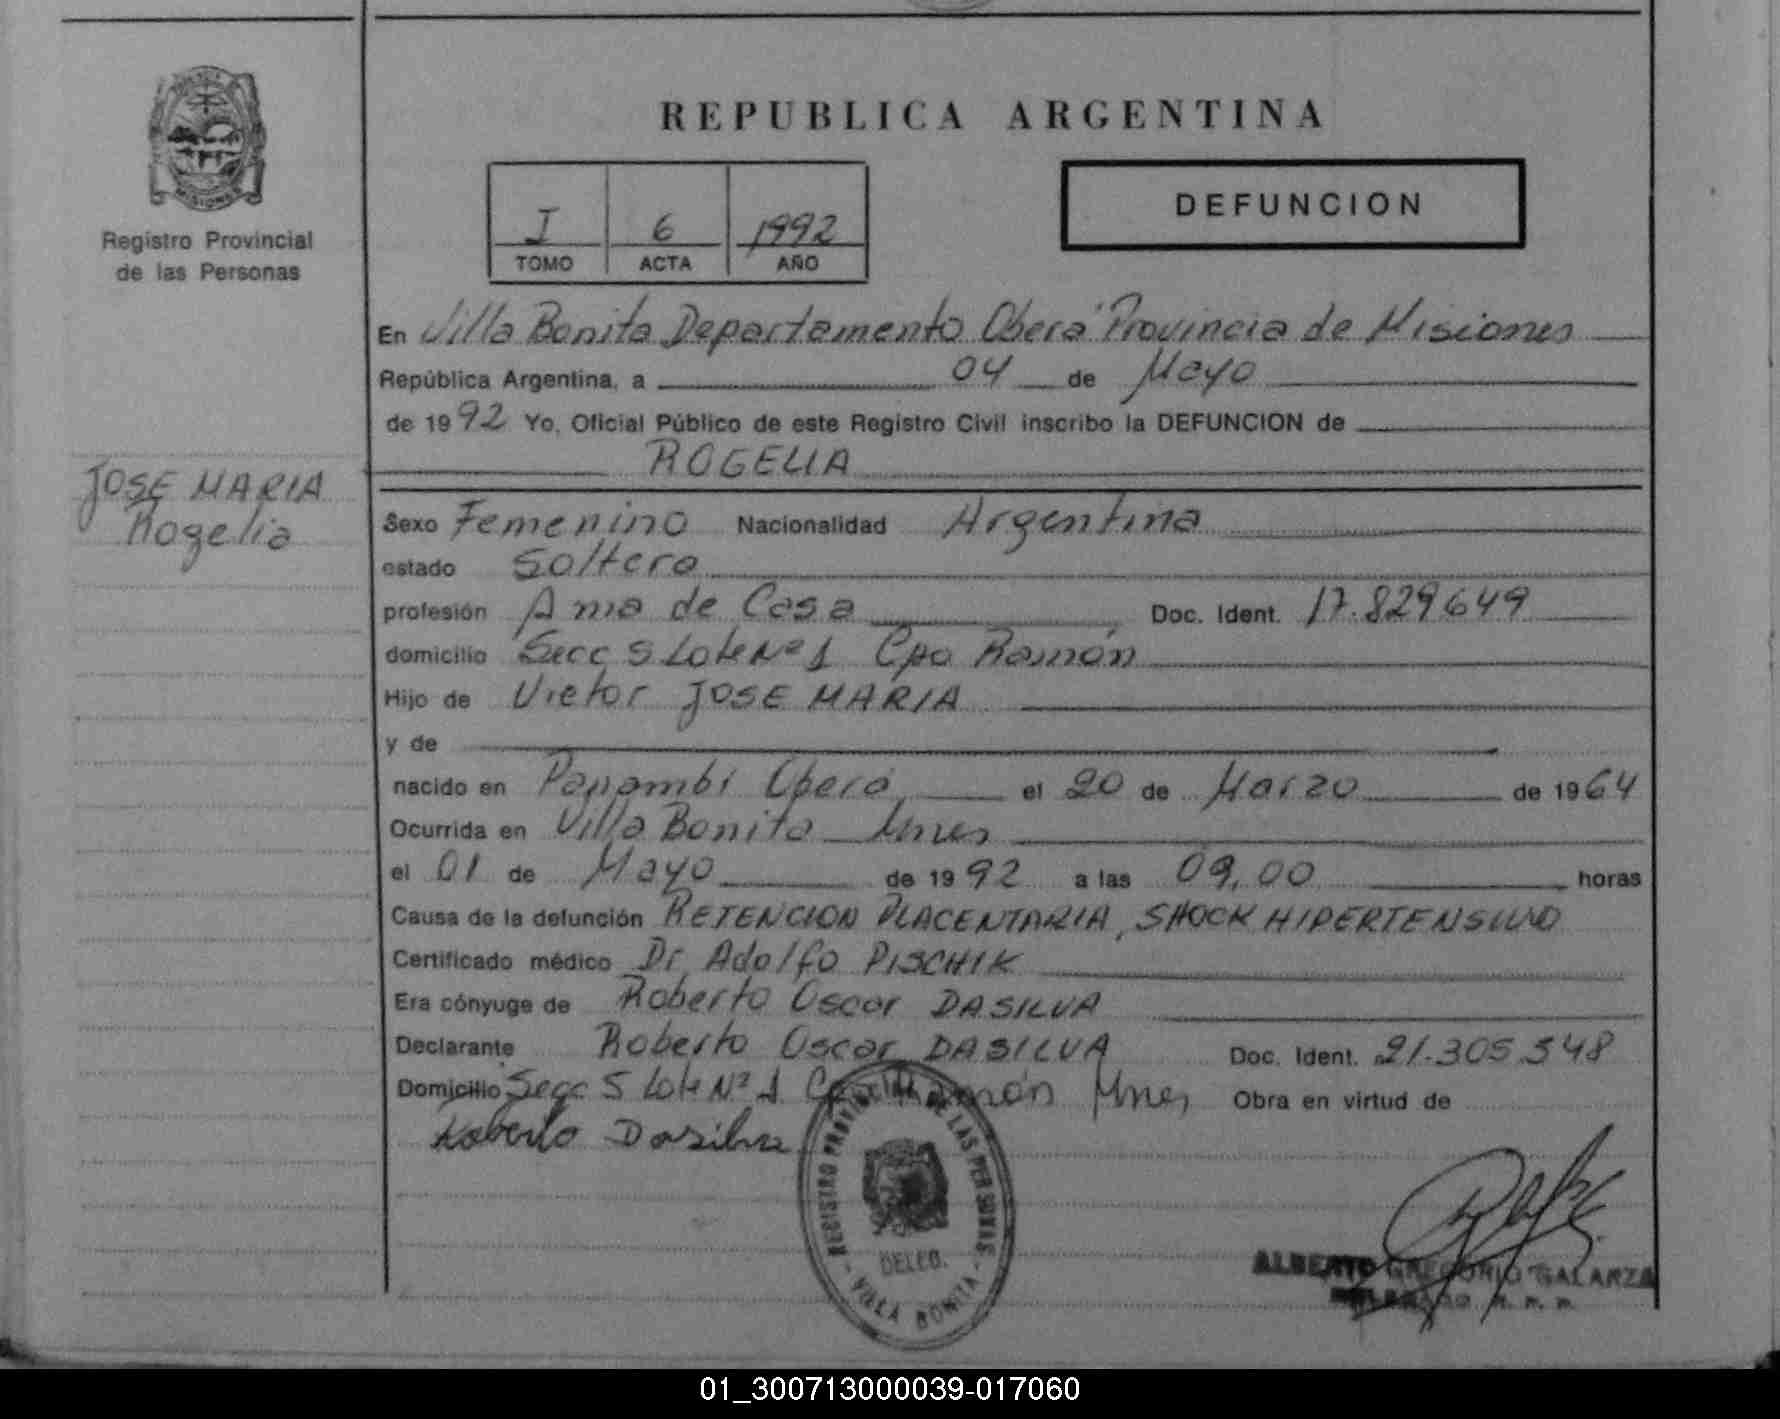 REPUBLICA ARGENTINA
MISIONES
Registro Provincial
de las Personas
I 6 1992
TOMO ACTA AÑO
DEFUNCION
En Villa Bonita Departamento Oberá Provincia de Misiones
República Argentina, a 04 de Mayo
de 1992 Yo, Oficial Público de este Registro Civil inscribo la DEFUNCION de
ROGELIA
JOSE MARIA
Rogelia
Sexo Femenino Nacionalidad Argentina
estado Soltera
profesión Ama de Casa Doc. Ident. 17.829649
domicilio Secc 5 Lote Nº 1 Cpo Ramón
Hijo de Victor JOSE MARIA
y de
nacido en Panambí Oberá el 20 de Marzo de 1964
Ocurrida en Villa Bonita Mnes
el 01 de Mayo de 1992 a las 09,00 horas
Causa de la defunción RETENCION PLACENTARIA, SHOCK HIPERTENSIVO
Certificado médico Dr Adolfo PISCHIK
Era cónyuge de Roberto Oscar DASILVA
Declarante Roberto Oscar DASILVA Doc. Ident. 21.305.548
Domicilio Secc 5 Lote Nº 1 Ramón Mnes Obra en virtud de
Roberto Dasilva
REGISTRO PROVINCIAL DE LAS PERSONAS
DELEG.
- VILLA BONITA -
ALBERTO GREGORIO GALARZA
01_300713000039-017060